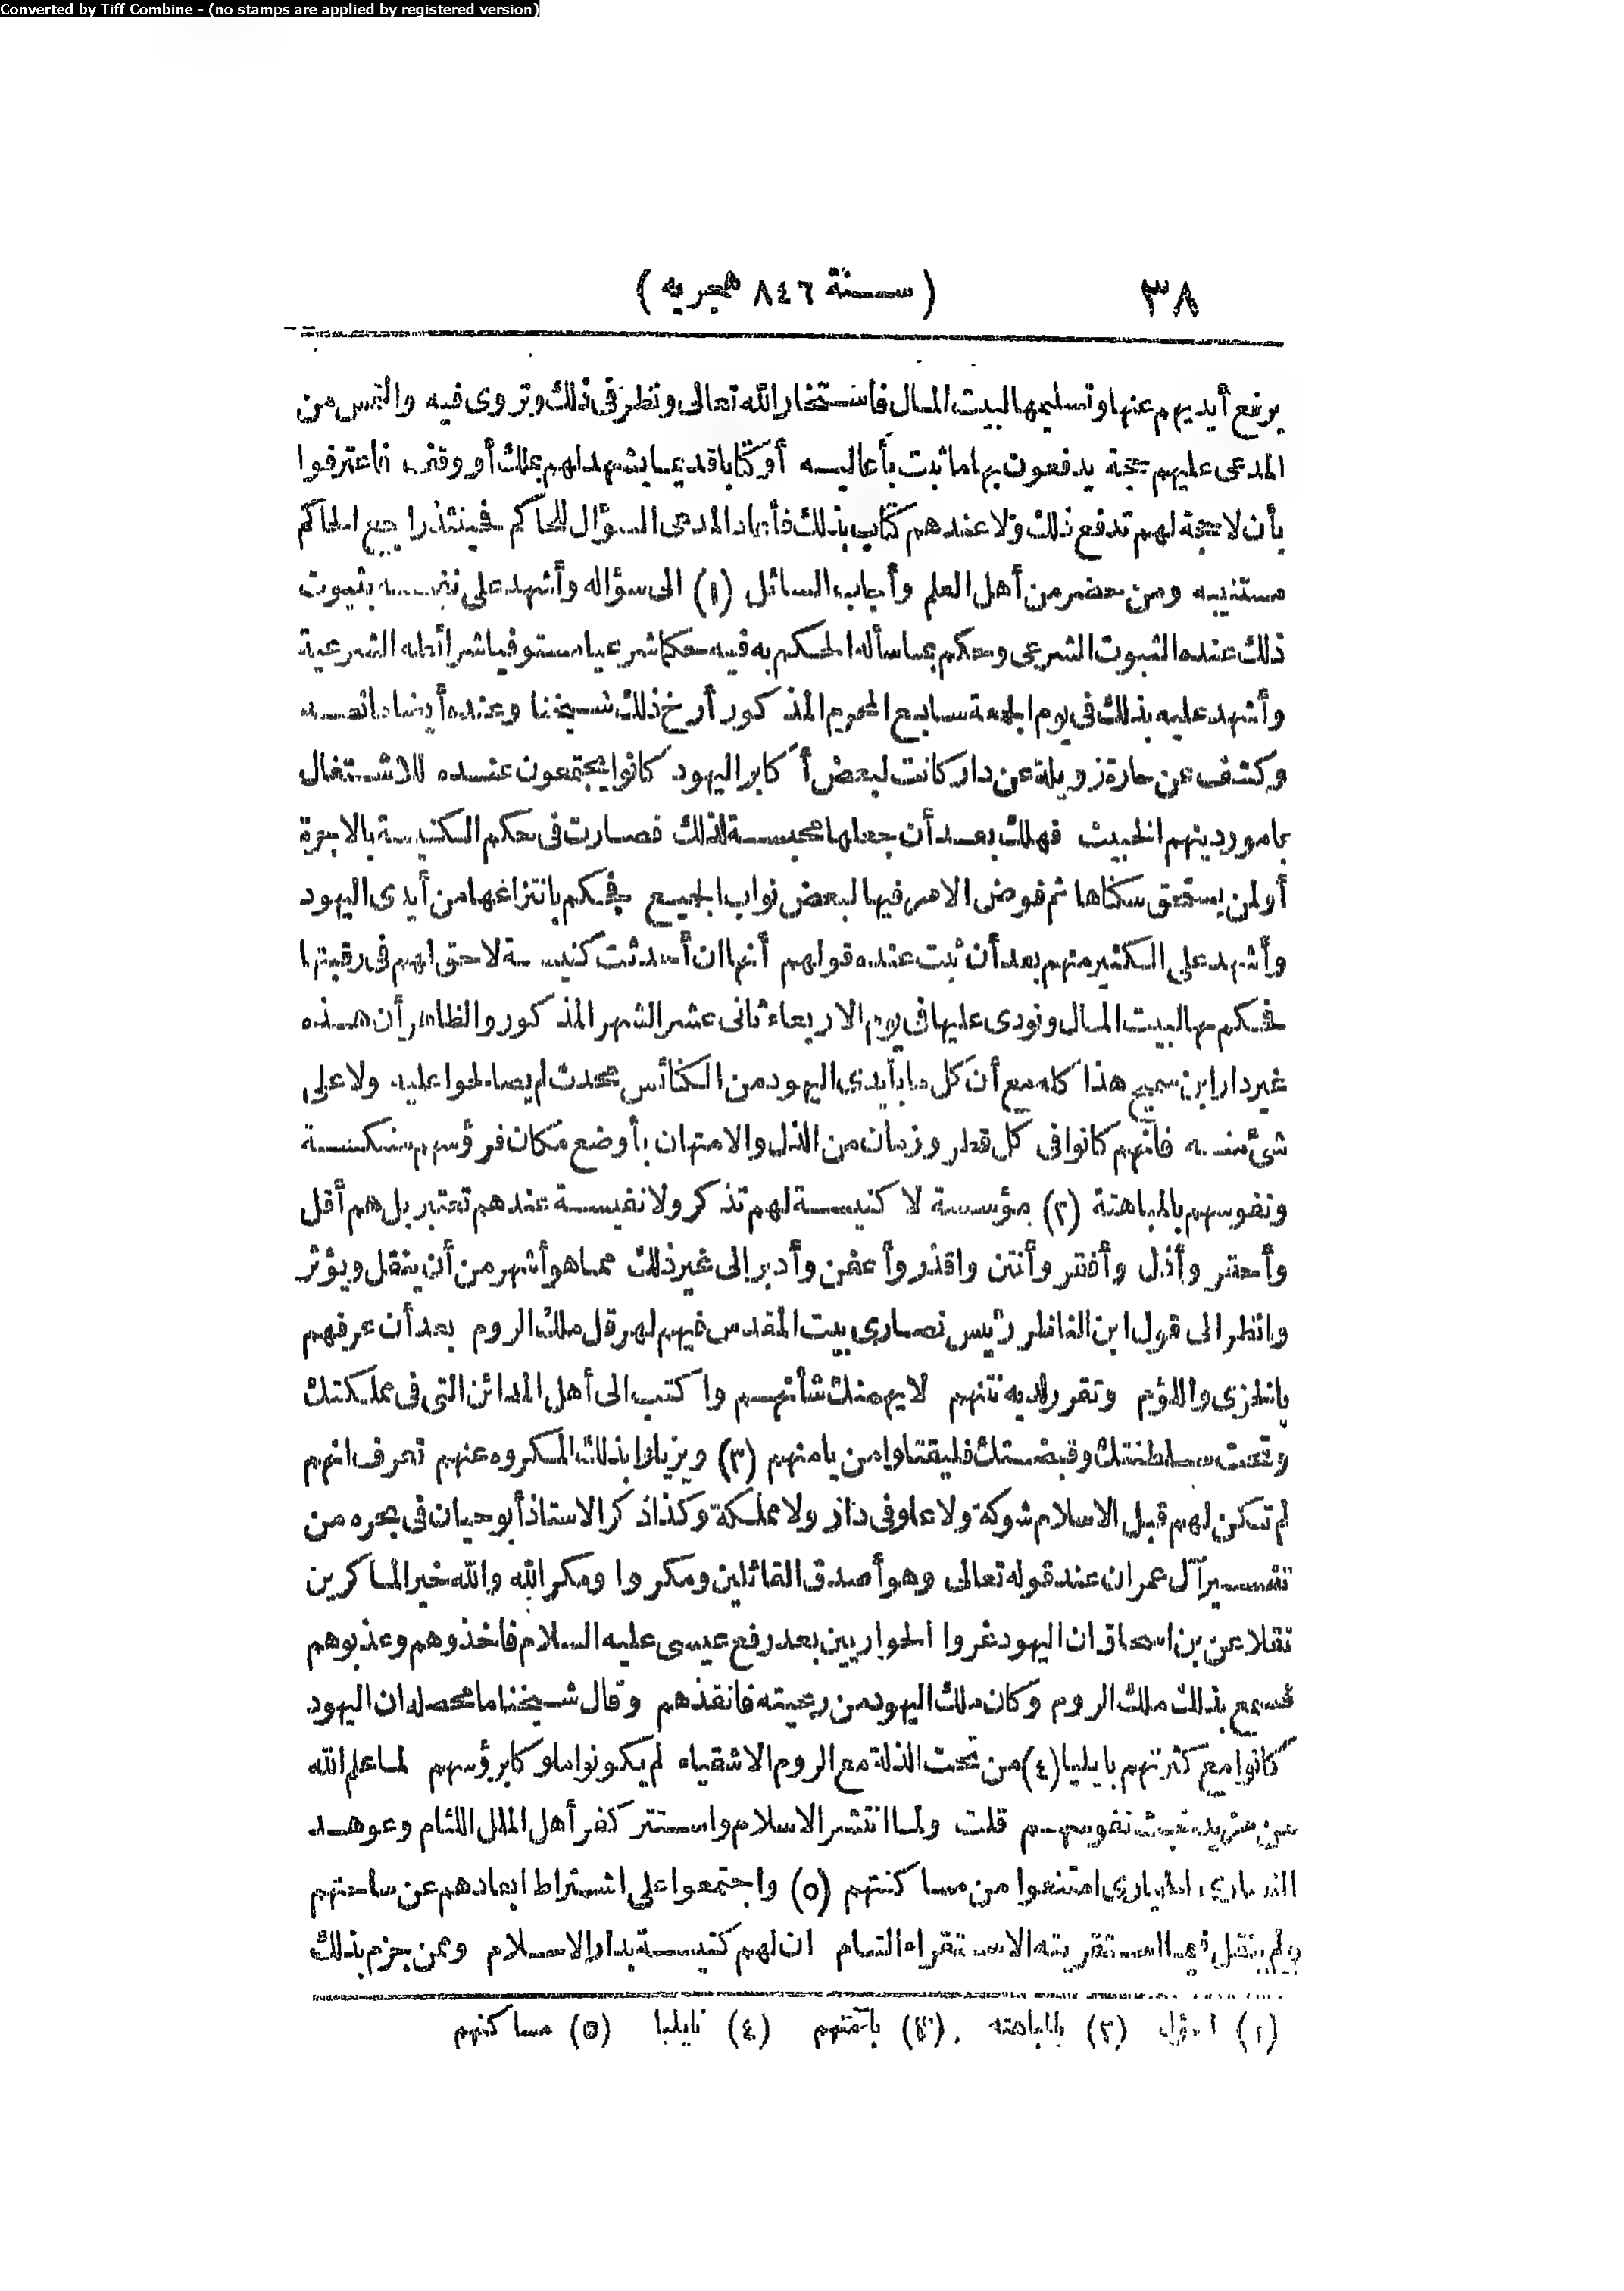 Converted by Tiff Combine - (no stamps are applied by registered version)
٣٨ (سنة ٨٤٦ هجريه)
يرفع أيديهم عنها وتسليمها لبيت المال فاستخار الله تعالى ونظر فى ذلك وتروى فيه والتمس من
المدعى عليهم حجة يدفعون بها ما ثبت بأعاليه أو كتابا قديما يشهد لهم بملك أو وقف فاعترفوا
بأن لا حجة لهم تدفع ذلك ولا عندهم كتاب بذلك فأعاد المدعى السؤال للحاكم فحينئذ راجع الحاكم
مستنيبه ومن حضر من أهل العلم وأجاب السائل (١) الى سؤاله وأشهد على نفسه بثبوت
ذلك عنده الثبوت الشرعى وحكم بما سأله الحكم به فيه حكما شرعيا مستوفيا شرائطه الشرعية
وأشهد عليه بذلك فى يوم الجمعة سابع المحرم المذكور أرخ ذلك شيخنا وعنده أيضا مانصه
وكشف عن حارة زويلة عن دار كانت لبعض أكابر اليهود كانوا يجتمعون عنده للاشتغال
بامور دينهم الخبيث فهلك بعد أن جعلها محبسة لذلك فصارت فى حكم الكنيسة بالاجرة
أولمن يستحق سكناها ثم فوض الامر فيها لبعض نواب الجميع فحكم بانتزاعها من أيدى اليهود
وأشهد على الكثير منهم بعد أن ثبت عنده قولهم أنها ان أحدثت كنيسة لاحق لهم فى رقبتها
فحكم بها لبيت المال ونودى عليها فى يوم الاربعاء ثانى عشر الشهر المذكور والظاهر أن هذه
غير دار ابن سميح هذا كله مع أن كل ما بأيدى اليهود من الكنائس محدث لم يصالحوا عليه ولا على
شئ منه فانهم كانوا فى كل قطر وزمان من الذل والامتهان بأوضع مكان فرؤسهم منكسة
ونفوسهم بالمباهتة (٢) مؤسسة لا كنيسة لهم تذكر ولا نفيسة عندهم تعتبر بل هم أقل
وأحقر وأذل وأفقر وأنتن واقذر وأعفن وأدبر الى غير ذلك مما هو أشهر من أن ينقل ويؤثر
وانظر الى قول ابن الناظر رئيس نصارى بيت المقدس فيهم لهرقل ملك الروم بعد أن عرفهم
بالخزى واللؤم وتقرر لديه نتنهم لا يهمنك شأنهم واكتب الى أهل المدائن التى فى مملكتك
وتحت سلطنتك وقبضتك فليقتلوا من يامنهم (٣) ويزيلوا بذلك المكروه عنهم تعرف انهم
لم تكن لهم قبل الاسلام شوكة ولا علو فى دار ولا مملكة وكذا ذكر الاستاذ أبو حيان فى بحره من
تفسير آل عمران عند قوله تعالى وهو أصدق القائلين ومكروا ومكر الله والله خير الماكرين
نقلا عن بن اسحاق ان اليهود غروا الحواريين بعد رفع عيسى عليه السلام فاخذوهم وعذبوهم
فسمع بذلك ملك الروم وكان ملك اليهود من رعيته فانقذهم وقال شيخنا ما محصله ان اليهود
كانوا مع كثرتهم بايليا (٤) من تحت الذلة مع الروم الاشقياء لم يكونوا ملوكا برؤسهم لما علم الله
من مزيد خبث نفوسهم قلت ولما انتشر الاسلام واستتر كفر أهل الملل اللئام وعوهد
النصارى الحيارى امتنعوا من مساكنتهم (٥) واجتمعوا على اشتراط ابعادهم عن ساحتهم
ولم ينقل فيما استقريته الاستقراء التام ان لهم كنيسة بدار الاسلام وممن جزم بذلك
(١) السؤل (٢) بالمباهته (٣) بآمنهم (٤) نايليا (٥) مساكنهم